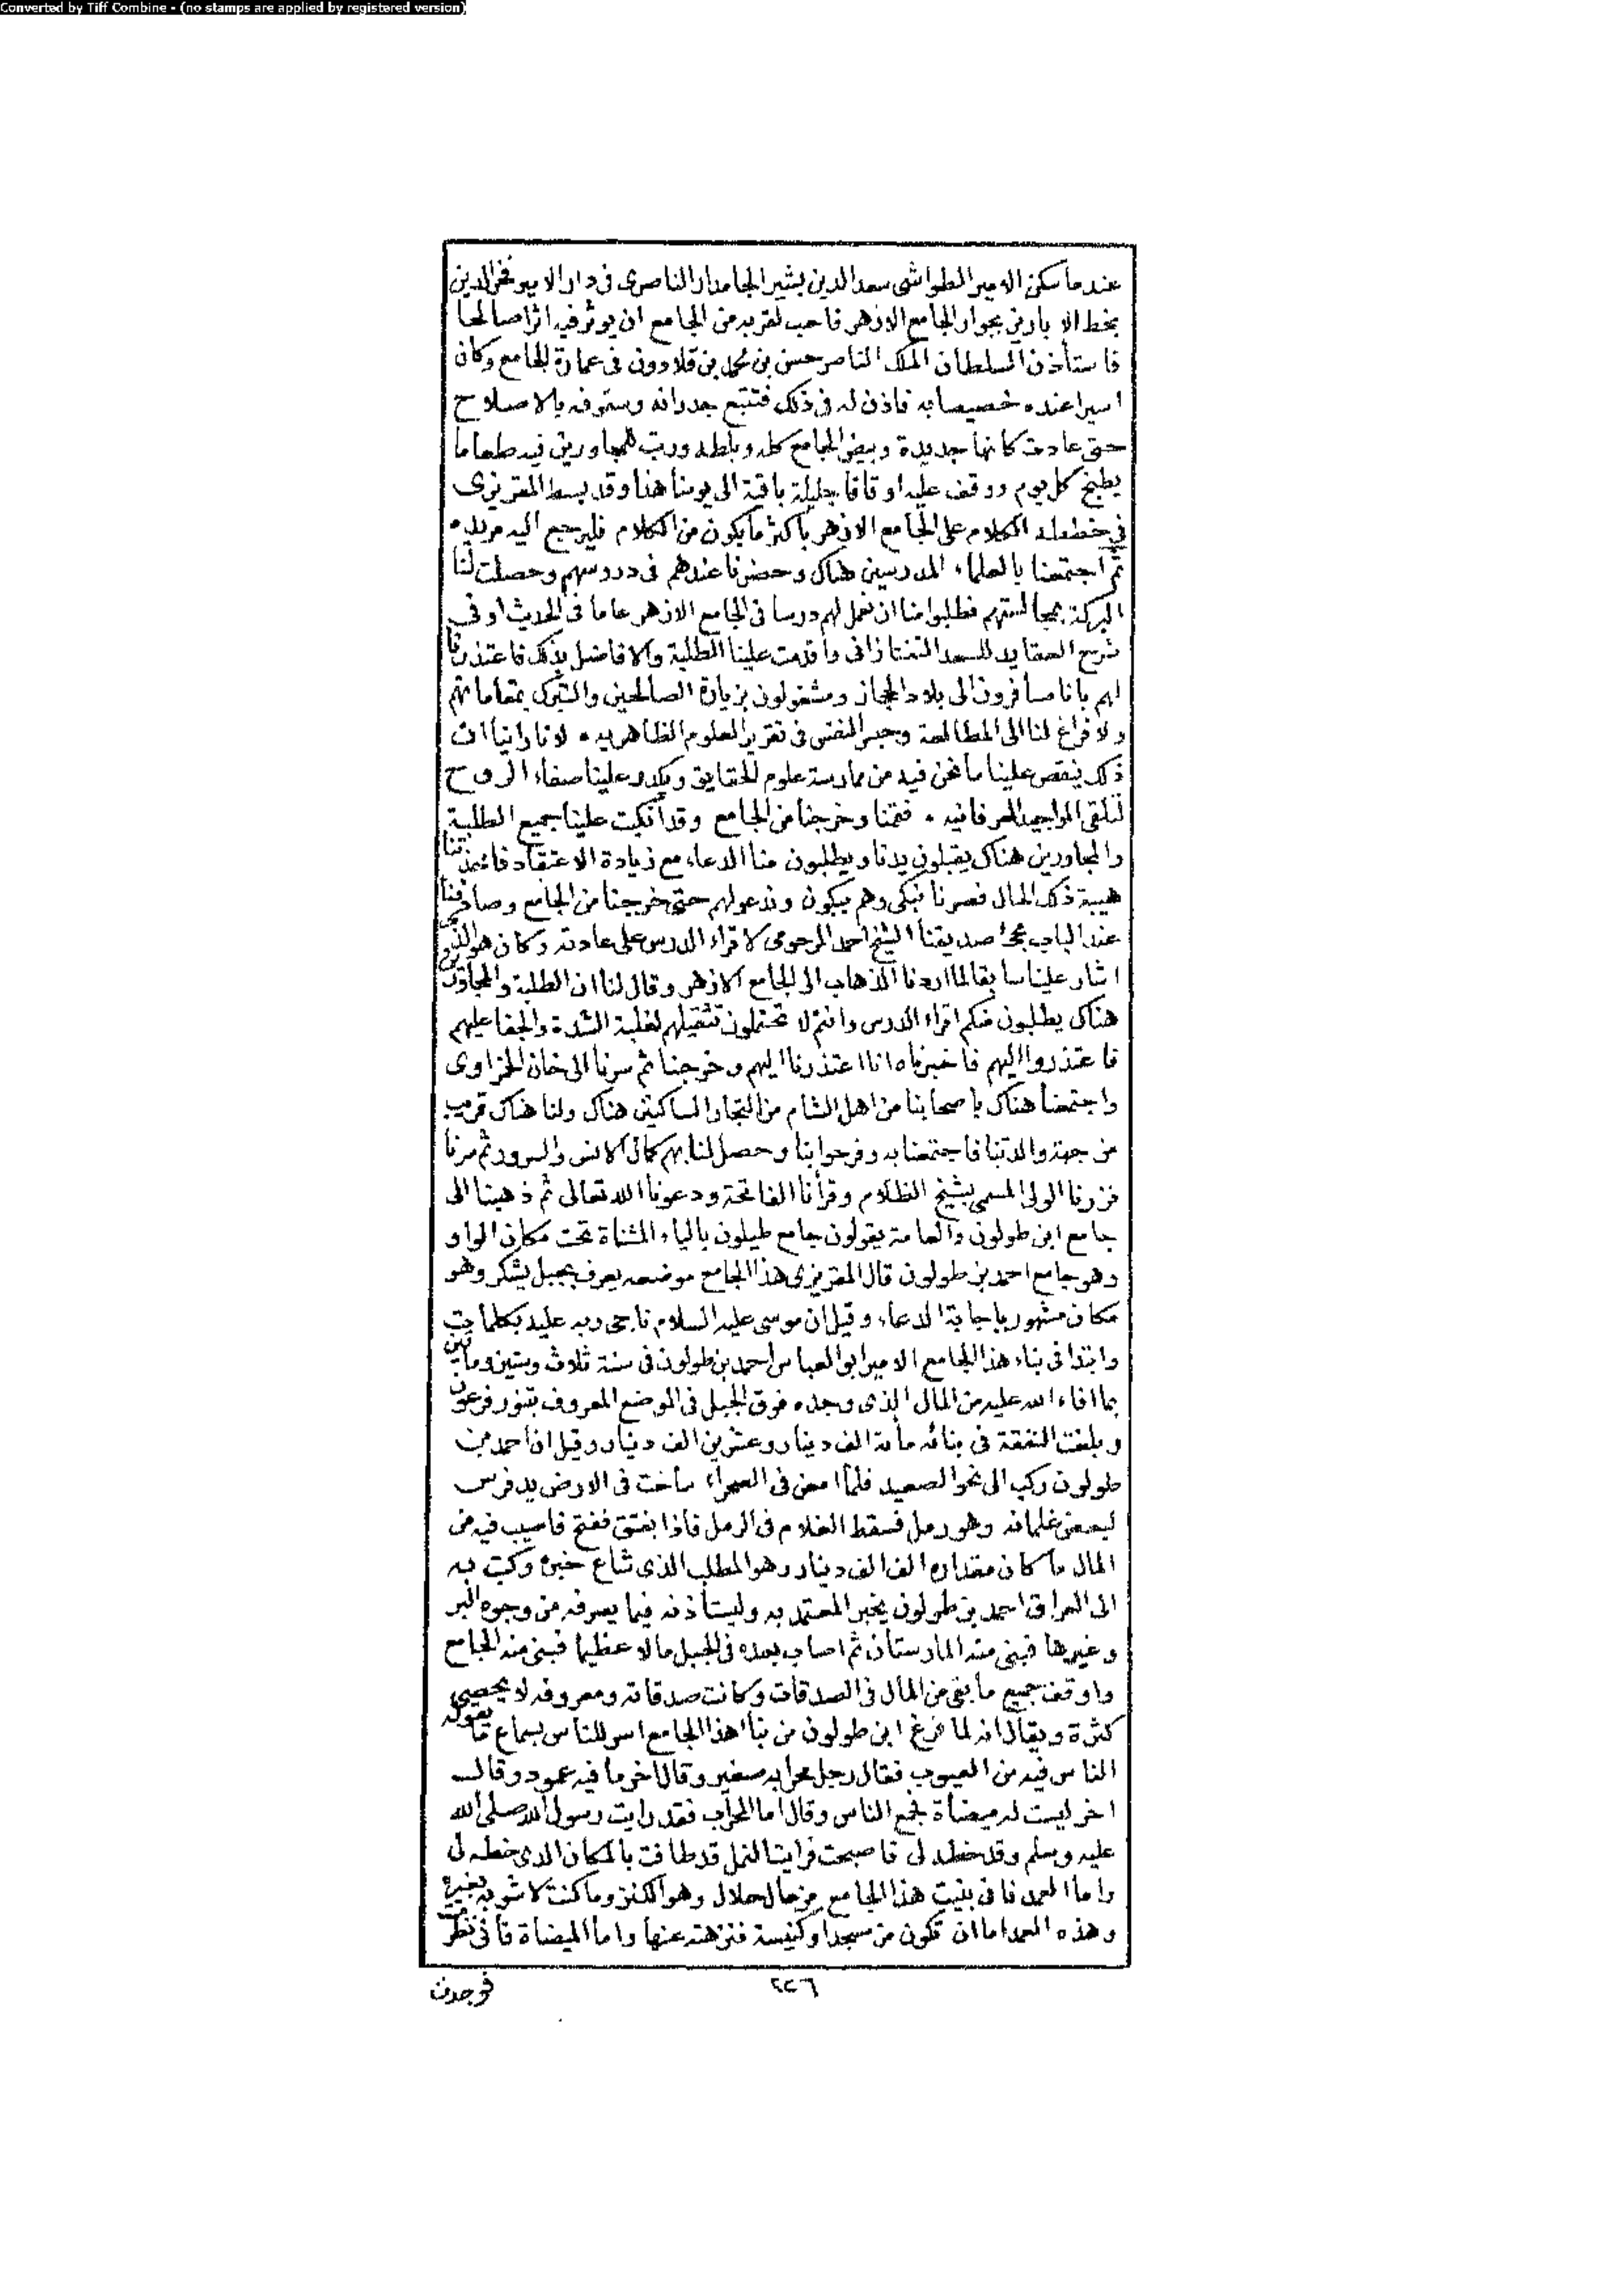 Converted by Tiff Combine - (no stamps are applied by registered version)
عندما سكن الامير الطواشى سعد الدين بشير الجامدار الناصرى فى دار الامير فخر الدين
بخط الابارين بجوار الجامع الازهر فاحب لقربه من الجامع ان يوثر فيه اثرا صالحا
فاستأذن السلطان الملك الناصر حسن بن محمد بن قلاوون فى عمارة الجامع وكان
اسيرا عنده خصيصا به فاذن له فى ذلك فتتبع جدرانه وسقوفه بالاصلاح
حتى عادت كانها جديدة وبيض الجامع كله وبلطه ورتب للمجاورين فيه طعاما
يطبخ كل يوم ووقف عليه اوقافا جليلة باقية الى يومنا هذا وقد بسط المقريزى
فى خططه الكلام على الجامع الازهر باكثر ما يكون من الكلام فليرجع اليه مريده
ثم اجتمعنا بالعلماء المدرسين هناك وحضرنا عندهم فى دروسهم وحصلت لنا
البركة بمجالستهم فطلبوا منا ان نعمل لهم درسا فى الجامع الازهر عاما فى الحديث او فى
شرح العقايد للسعد التفتازانى واقدمت علينا الطلبة والافاضل بذلك فاعتذرنا
لهم بانا مسافرون الى بلاد الحجاز ومشغولون بزيارة الصالحين والتبرك بمقاماتهم
ولا فراغ لنا الى المطالعة وجبر النفس فى تقرير العلوم الظاهريه لانا راينا ان
ذلك ينقص علينا ما نحن فيه من ممارسة علوم الحقايق ويكدر علينا صفاء الروح
لتلقى المواجيد العرفانيه فقمنا وخرجنا من الجامع وقد انكبت علينا جميع الطلبة
والمجاورين هناك يقبلون يدنا ويطلبون منا الدعاء مع زيادة الاعتقاد فاخذتنا
هيبة ذلك الحال فصرنا نبكى وهم يبكون وندعو لهم حتى خرجنا من الجامع وصادفنا
عند الباب مجئ صديقنا الشيخ احمد المرحومى لاقراء الدرس على عادته وكان هو الذى
اشار علينا سابقا لما اردنا الذهاب الى الجامع الازهر وقال لنا ان الطلبة والمجاورين
هناك يطلبون منكم اقراء الدرس وانتم لا تحتملون تثقيلهم لغلبة الشدة والجفا عليهم
فاعتذروا اليهم فاخبرناه انا اعتذرنا اليهم وخرجنا ثم سرنا الى خان الحمزاوى
واجتمعنا هناك باصحابنا من اهل الشام من التجار الساكنين هناك ولنا هناك قريب
من جهة والدتنا فاجتمعنا به وفرحوا بنا وحصل لنا بهم كمال الانس والسرور ثم سرنا
فزرنا الولى المسمى بشيخ الظلام وقرأنا الفاتحة ودعونا الله تعالى ثم ذهبنا الى
جامع ابن طولون والعامة يقولون جامع طيلون بالياء المثناة تحت مكان الواو
وهو جامع احمد بن طولون قال المقريزى هذا الجامع موضعه يعرف بجبل يشكر وهو
مكان مشهور باجابة الدعاء وقيل ان موسى عليه السلام ناجى ربه عليه بكلمات
وابتدا فى بناء هذا الجامع الامير ابو العباس احمد بن طولون فى سنة ثلاث وستين ومايتين
بما افاء الله عليه من المال الذى وجده فوق الجبل فى الموضع المعروف بتنور فرعون
وبلغت النفقة فى بنائه مائة الف دينار وعشرين الف دينار وقيل ان احمد بن
طولون ركب الى نحو الصعيد فلما امعن فى الصحراء ساخت فى الارض يد فرس
لبعض غلمانه وهو رمل فسقط الغلام فى الرمل فاذا بفتق ففتح فاصيب فيه من
المال ما كان مقداره الف الف دينار وهو المطلب الذى شاع خبره وكتب به
الى العراق احمد بن طولون يخبر المعتمد به وليستأذنه فيما يصرفه من وجوه البر
وغيرها فبنى منه المارستان ثم اصاب بعده فى الجبل مالا عظيما فبنى منه الجامع
واوقف جميع ما بقى من المال فى الصدقات وكانت صدقاته ومعروفه لا يحصى
كثرة ويقال انه لما فرغ ابن طولون من بنا هذا الجامع اسر للناس بسماع ما يقوله
الناس فيه من العيوب فقال رجل محرابه صغير وقال اخر ما فيه عمود وقال
اخر ليست له ميضاة فجمع الناس وقال اما المحراب فقد رايت رسول الله صلى الله
عليه وسلم وقد خطه لى فاصبحت فرايت النمل قد طافت بالمكان الذى خطه لى
واما العمد فانى بنيت هذا الجامع من مال حلال وهو الكنز وما كنت لاشوبه بغيره
وهذه العمد اما ان تكون من مسجد او كنيسة فنزهته عنها واما الميضاة فانى نظرت
٢٢٦
فوجدت